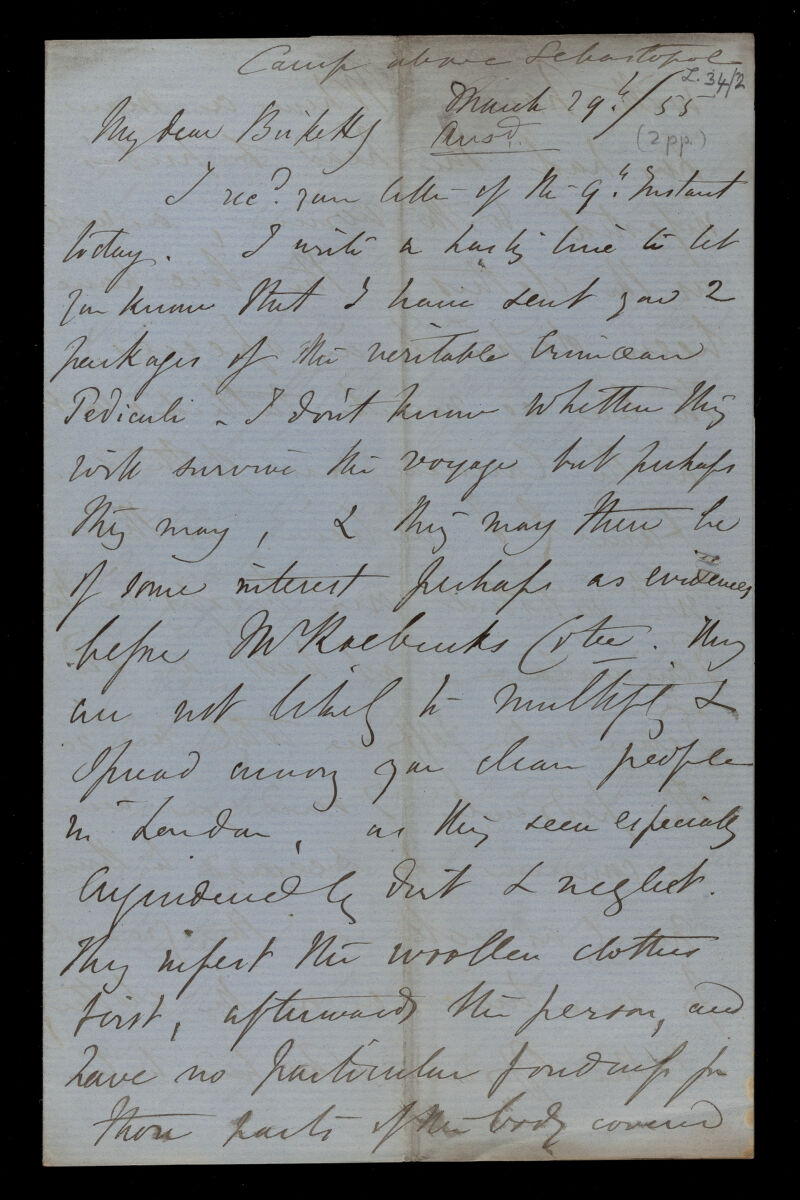 Camp above Sebastopol
L.34/2
March 29th/55
My dear Birkett
Ansd.
(2 pp.)
I recd. your letter of the 9th Instant
today. I write a hasty line to let
you know that I have sent you 2
packages of the veritable Crimean
Pediculi - I don't know whether they
will survive the voyage but perhaps
they may, & they may then be
of some interest perhaps as evidences
before Mr Roebucks Cotee. They
are not likely to multiply &
spread among you clean people
in London, as they seem especially
engendered by dirt & neglect.
They infest the woollen clothes
first, afterwards the person, and
have no particular fondness for
those parts of the body covered